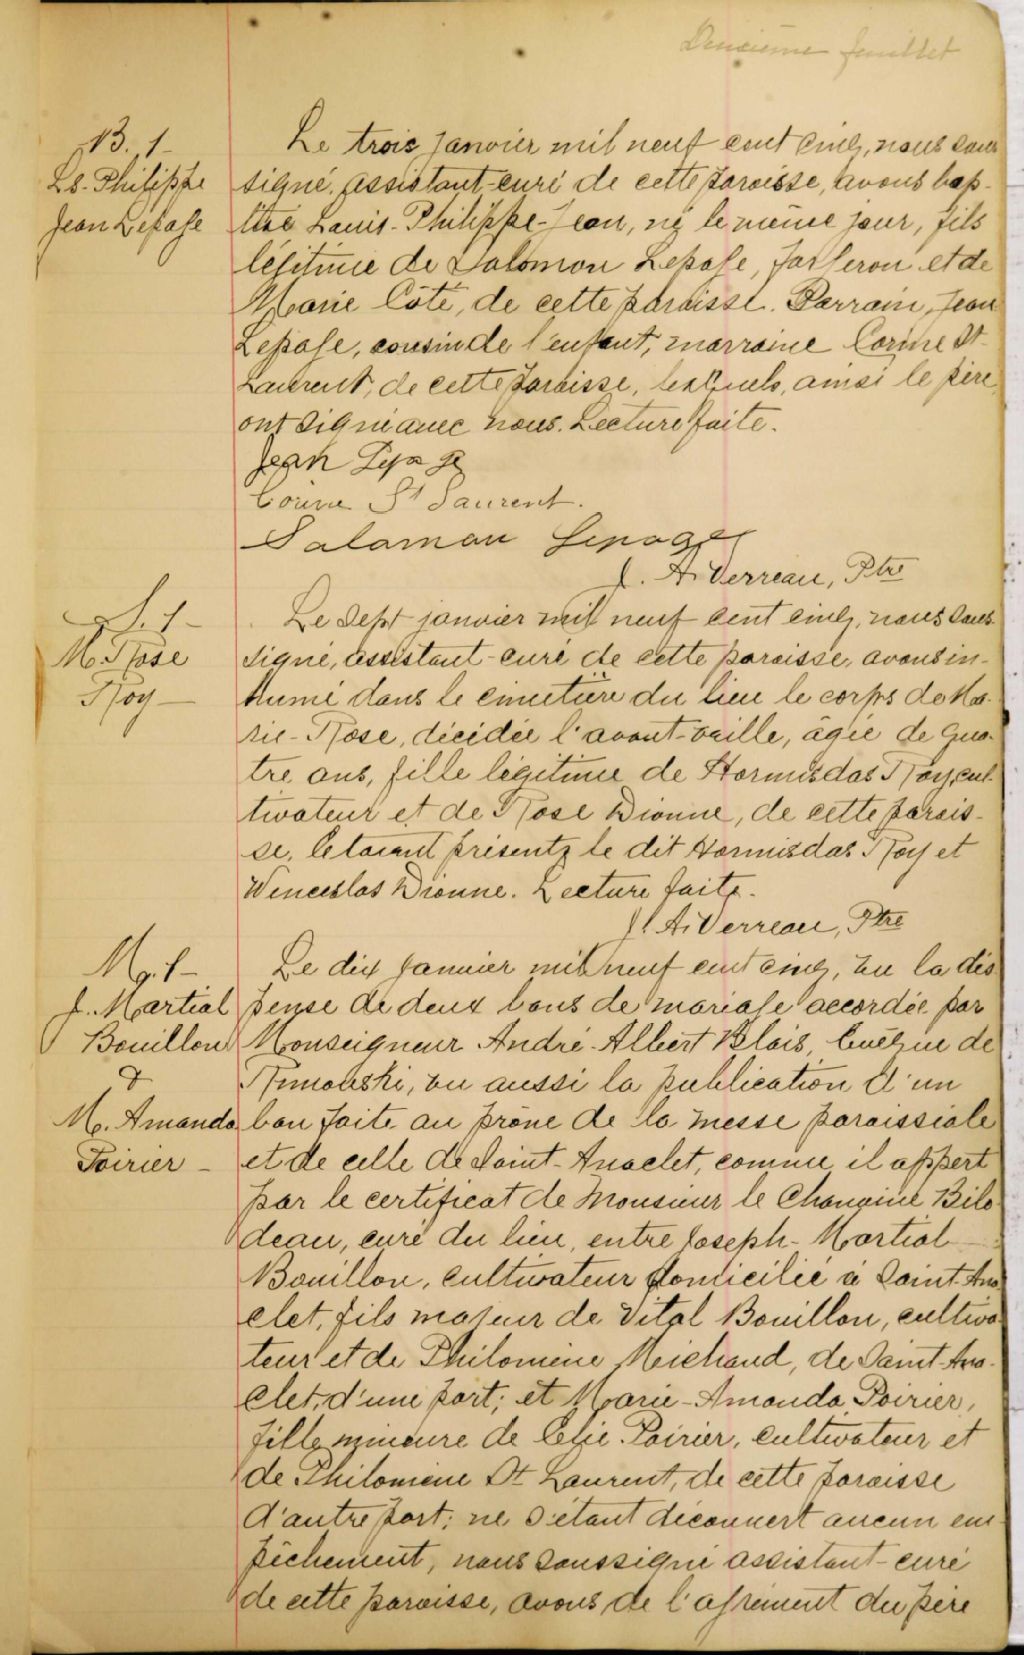 Deuxième feuillet
B. 1-
Ls-Philippe
Jean Lepage
Le trois janvier mil neuf cent cinq, nous sous
signé, assistant-curé de cette paroisse, avons bap-
tisé Louis-Philippe-Jean, né le même jour, fils
légitime de Salomon Lepage, forgeron et de
Marie Côté, de cette paroisse. Parrain, Jean
Lepage, cousin de l'enfant, marraine Corine St-
Laurent, de cette paroisse, lesquels, ainsi le père,
ont signé avec nous. Lecture faite.
Jean Lepage
Corine St Laurent.
Salomon Lepage
J. A. Verreau, Ptre
S. 1-
M. Rose
Roy-
Le sept janvier mil neuf cent cinq, nous sous-
signé, assistant-curé de cette paroisse, avons in-
humé dans le cimetière du lieu le corps de Ma-
rie-Rose, décédée l'avant-veille, âgée de qua-
tre ans, fille légitime de Hormisdas Roy, cul-
tivateur et de Rose Dionne, de cette parois-
se. Etaient présents le dit Hormisdas Roy et
Wenceslas Dionne. Lecture faite.
J. A. Verreau, Ptre
M. 1-
J. Martial
Bouillon
&
M. Amanda
Poirier -
Le dix janvier mil neuf cent cinq, vu la dis
pense de deux bans de mariage accordée par
Monseigneur André-Albert Blais, Evêque de
Rimouski, vu aussi la publication d'un
ban faite au prône de la messe paroissiale
et de celle de Saint-Anaclet, comme il appert
par le certificat de Monsieur le Chanoine Bilo
deau, curé du lieu, entre Joseph-Martial
Bouillon, cultivateur domicilié à Saint-Ana
clet, fils majeur de Vital Bouillon, cultiva
teur et de Philomène Michaud, de Saint-Ana-
clet, d'une part; et Marie-Amanda Poirier,
fille mineure de Elie Poirier, cultivateur et
de Philomène St Laurent, de cette paroisse
d'autre part; ne s'étant découvert aucun em
pêchement, nous soussigné assistant-curé
de cette paroisse, avons de l'agrément du père